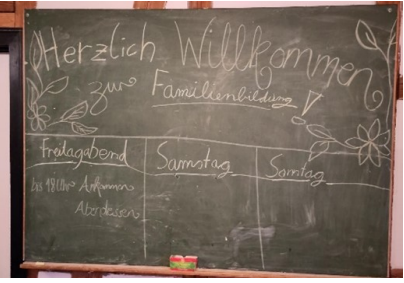 Herzlich Willkommen
zur Familienbildung!
Freitagabend Samstag Sonntag
bis 18 Uhr Ankommen
Abendessen